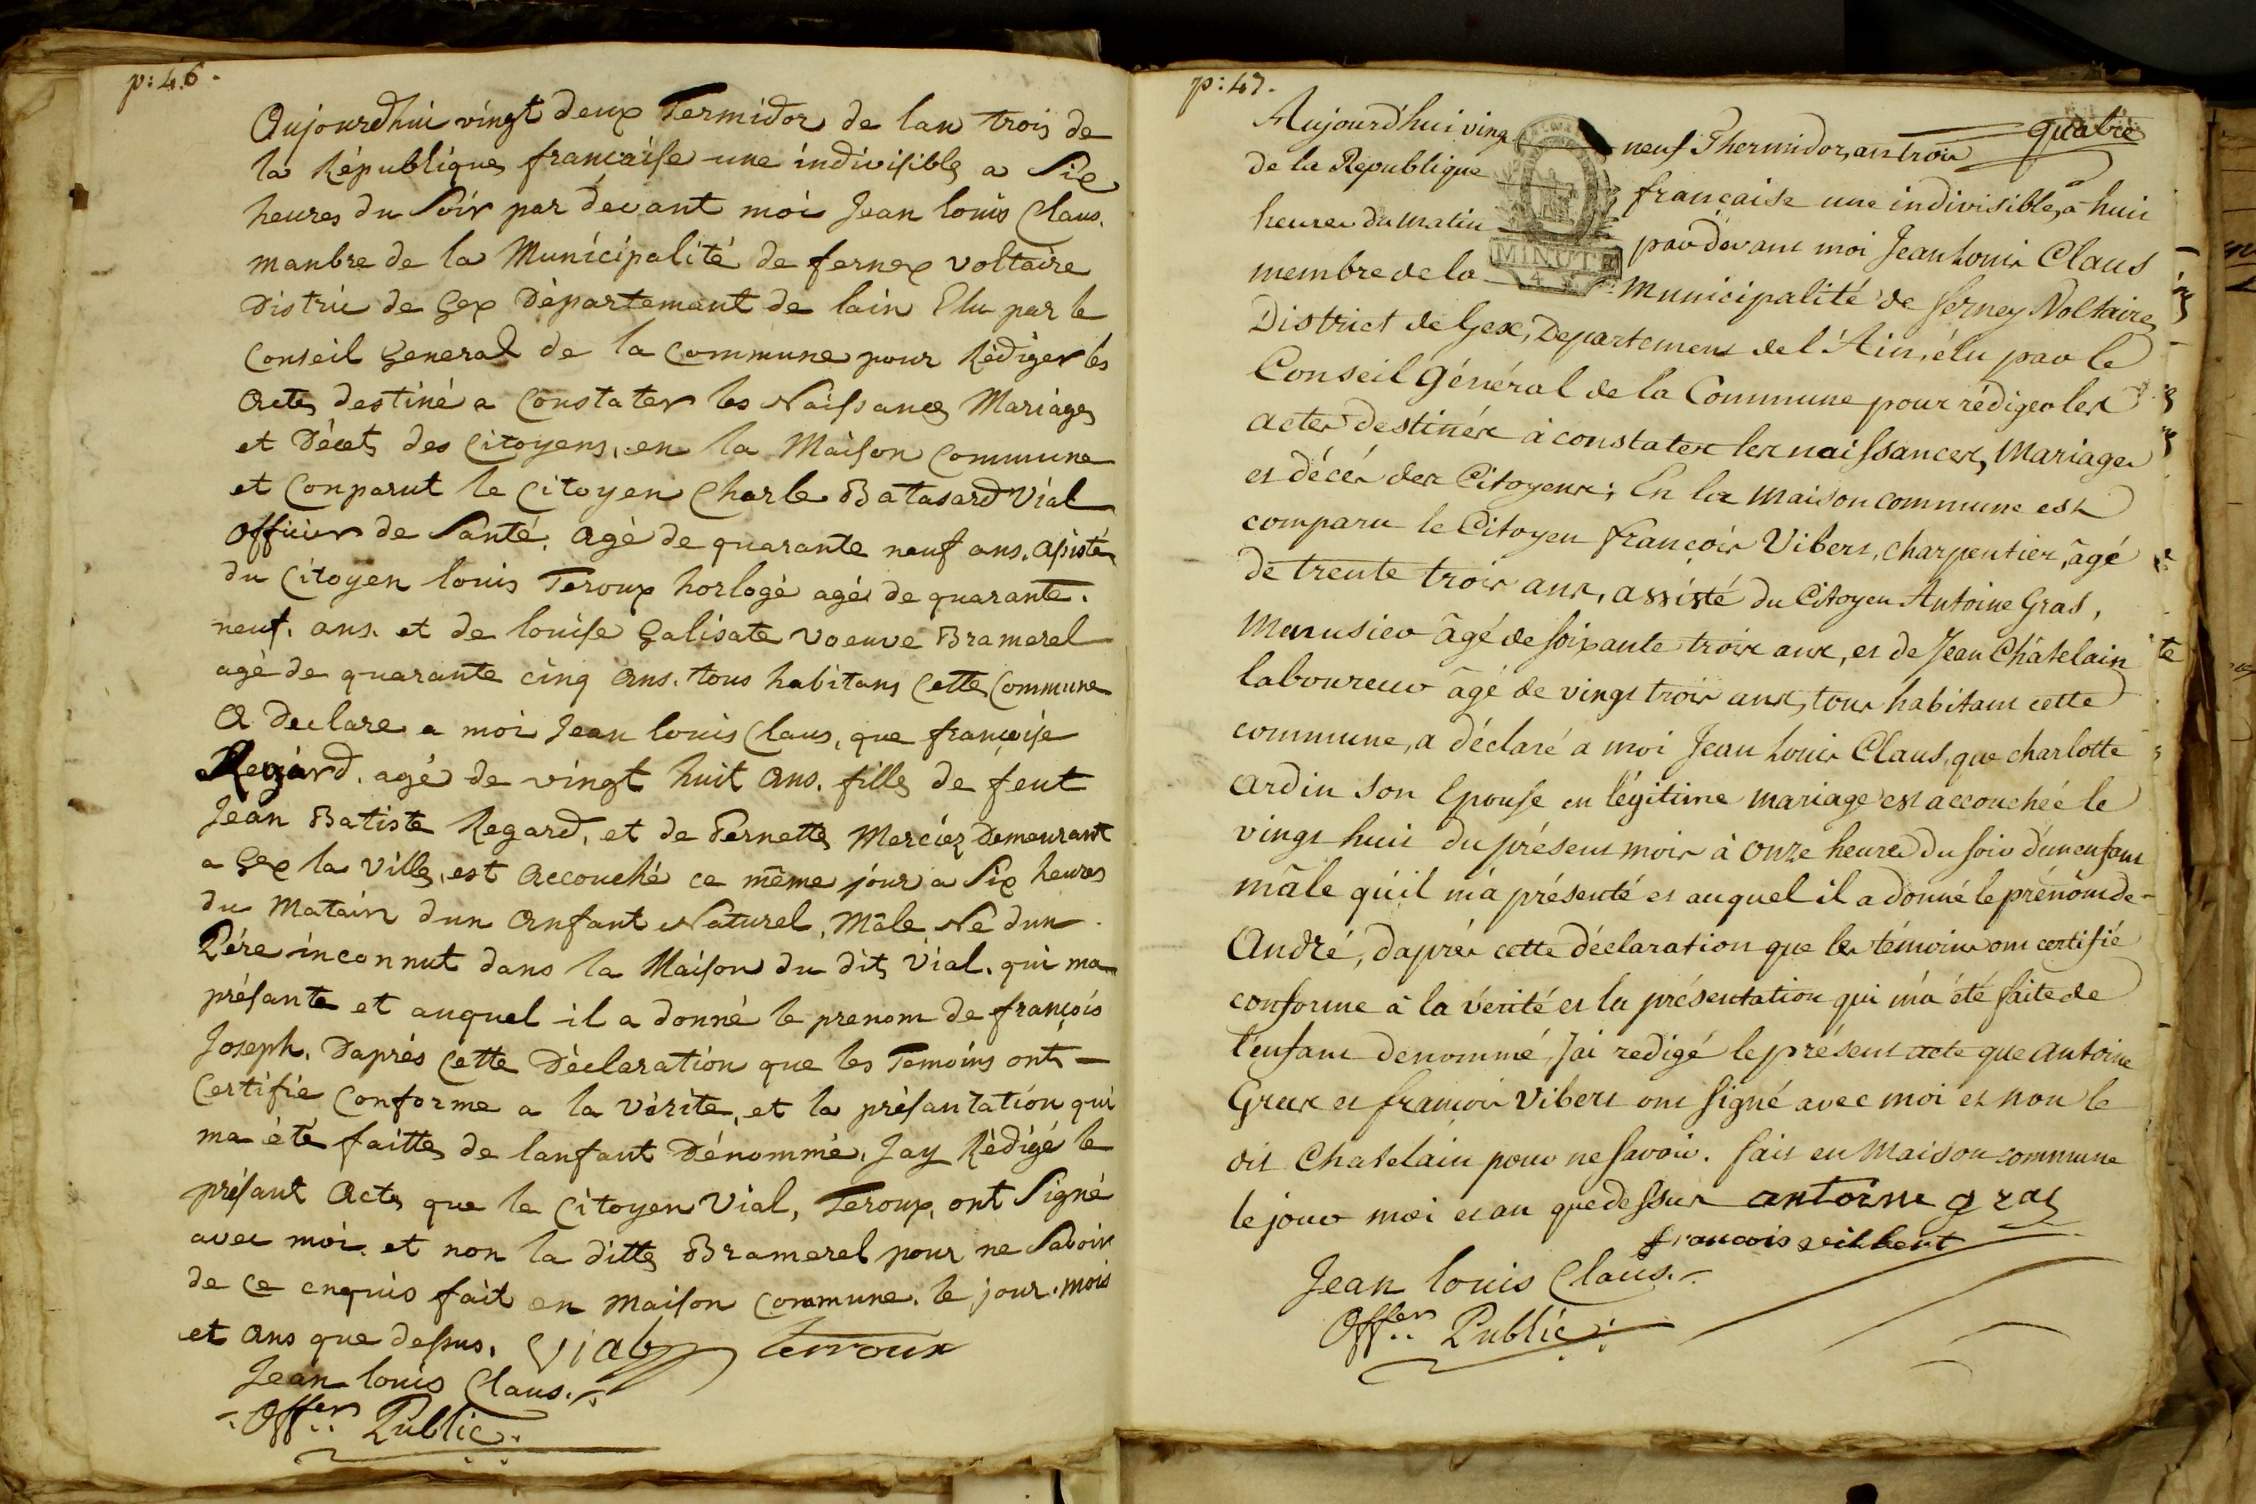 p: 46.
Aujourdhui vingt deux Termidor de lan trois de
la République francaise une indivisible a Six
heures du Soir par devant moi Jean louis Claus.
manbre de la Municipalité de fernex voltaire
Distric de Gex Département de lain Elu par le
Conseil General de la Commune pour Rédiger les
Actes destiné a Constater les Naissances Mariages
et Décet des Citoyens, en la Maison Commune
et Conparut le Citoyen Charle Batasard Vial
Officier de Santé. Agé de quarante neuf ans. Asisté
du Citoyen louis Teroux horlogé agé de quarante.
neuf. ans. et de louise Galisate voeuve Bramerel
agé de quarante cinq Ans. tous habitans Cette Commune
A declare a moi Jean louis Claus, que francoise
Regard. agé de vingt huit Ans. fille de feut
Jean Batiste Regard, et de Pernette Mercier Demeurant
a Gex la Ville, est Accouché ce même jour a Six heures
du Matain dun Anfant Naturel, Mâle, Né dun
Pére inconnut dans la Maison du dit Vial. qui ma
présante et auquel il a donné le prenom de françois
Joseph. Daprés Cette Déclaration que les Temoins ont
Certifié Conforme a la Vérite, et la présantation qui
ma été faitte de lanfant Dénommé. Jay Rédigé le
présant Acte que le Citoyen Vial, Teroux, ont Signé
avec moi. et non la ditte Bramerel pour ne Savoir
de Ce enquis fait en Maison Commune. le jour. mois
et Ans que dessus. Vial Terroux
Jean louis Claus.
Offer Public
p: 47.
Aujourd'hui vingt neuf Thermidor, an trois quatre
de la Republique française une indivisible, à huit
heures du matin par devant moi Jean Louis Claus
MINUT
membre de la Municipalité de ferney Voltaire
District de Gex, Departement de l'Ain, élu par le
Conseil Général de la Commune pour rédiger les
actes destinés à constater les naissances, Mariages
et décés des Citoyens; En la maison commune est
comparu le Citoyen francois Vibert, charpentier, âgé
de trente trois ans, assisté du Citoyen Antoine Gras,
Menusier âgé de soixante trois ans, et de Jean Châtelain
laboureur âgé de vingt trois ans, tous habitans cette
commune, a déclaré a moi Jean Louis Claus, que charlotte
Ardin son Epouse en légitime mariage est accouchée le
vingt huit du présent mois à onze heures du soir d'un enfant
mâle qu'il m'a présenté et auquel il a donné le prénom de
André, daprés cette déclaration que les témoins ont certifié
conforme à la vérité et la présentation qui m'a été faite de
l'enfant denommé, J'ai redigé le présent acte que Antoine
Gras et francois Vibert ont signé avec moi et non le
dit Chatelain pour ne savoir. fait en Maison commune
le jour mois et an que dessus antoine gras
francois vilbert
Jean louis Claus.
Offer Public